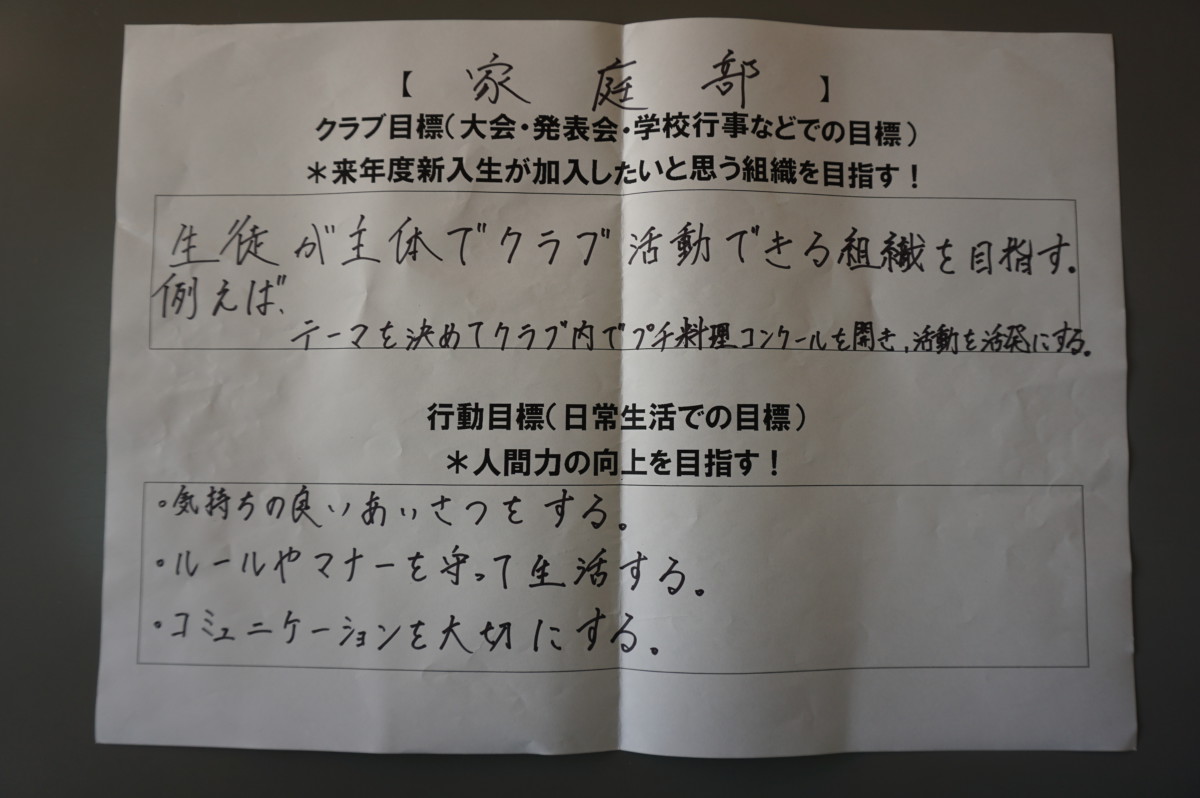 【 家庭部 】
クラブ目標(大会・発表会・学校行事などでの目標)
＊来年度新入生が加入したいと思う組織を目指す！
生徒が主体でクラブ活動できる組織を目指す。
例えば、
テーマを決めてクラブ内でプチ料理コンクールを開き、活動を活発にする。
行動目標(日常生活での目標)
＊人間力の向上を目指す！
・気持ちの良いあいさつをする。
・ルールやマナーを守って生活する。
・コミュニケーションを大切にする。